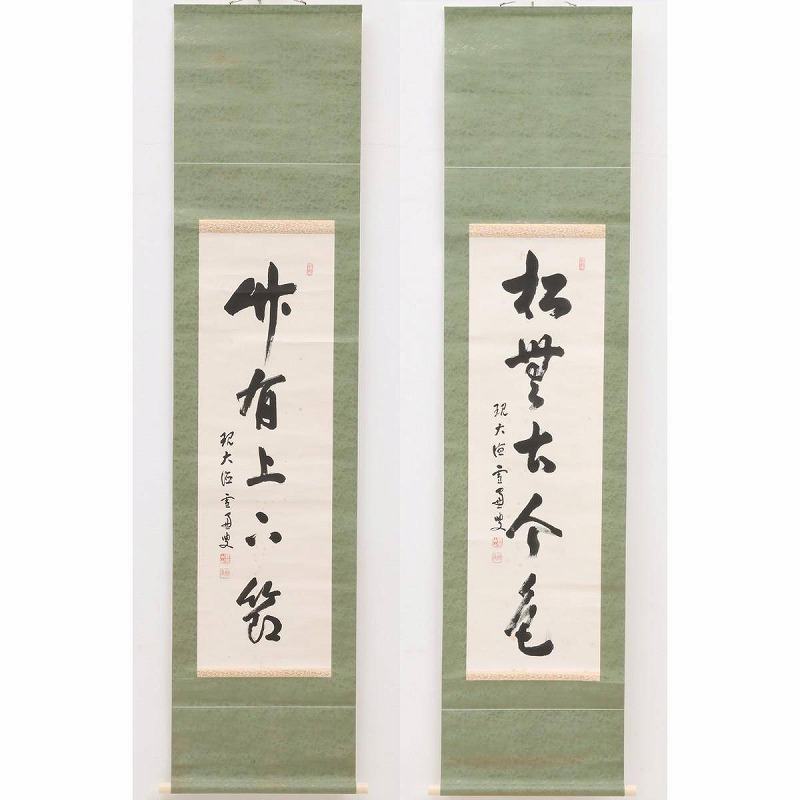 松無古今色
現大徳雪窓叟
竹有上下節
現大徳雪窓叟